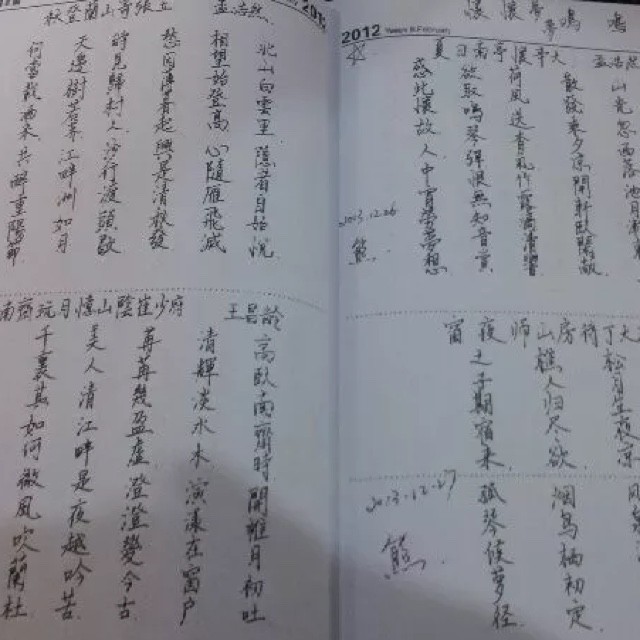 2012
夏日南亭懷辛大
散髮乘夕涼開軒臥閑敞
荷風送香氣竹露滴清響
欲取鳴琴彈恨無知音賞
感此懷故人中宵勞夢想
2013.12.26
師山房待丁大
樵人归尽欲
煙鳥棲初定
之子期宿來
孤琴候蘿徑
2013.12.27
秋登蘭山寄張五
北山白雲里隱者自怡悅
相望始登高心隨雁飛滅
愁因薄暮起興是清秋發
時見歸村人沙行渡頭歇
天邊樹若薺江畔洲如月
何當載酒來共醉重陽節
南齋玩月憶山陰崔少府 王昌齡
高臥南齋時開帷月初吐
清輝淡水木演漾在窗戶
苒苒幾盈虛澄澄變今古
美人清江畔是夜越吟苦
千裏其如何微風吹蘭杜